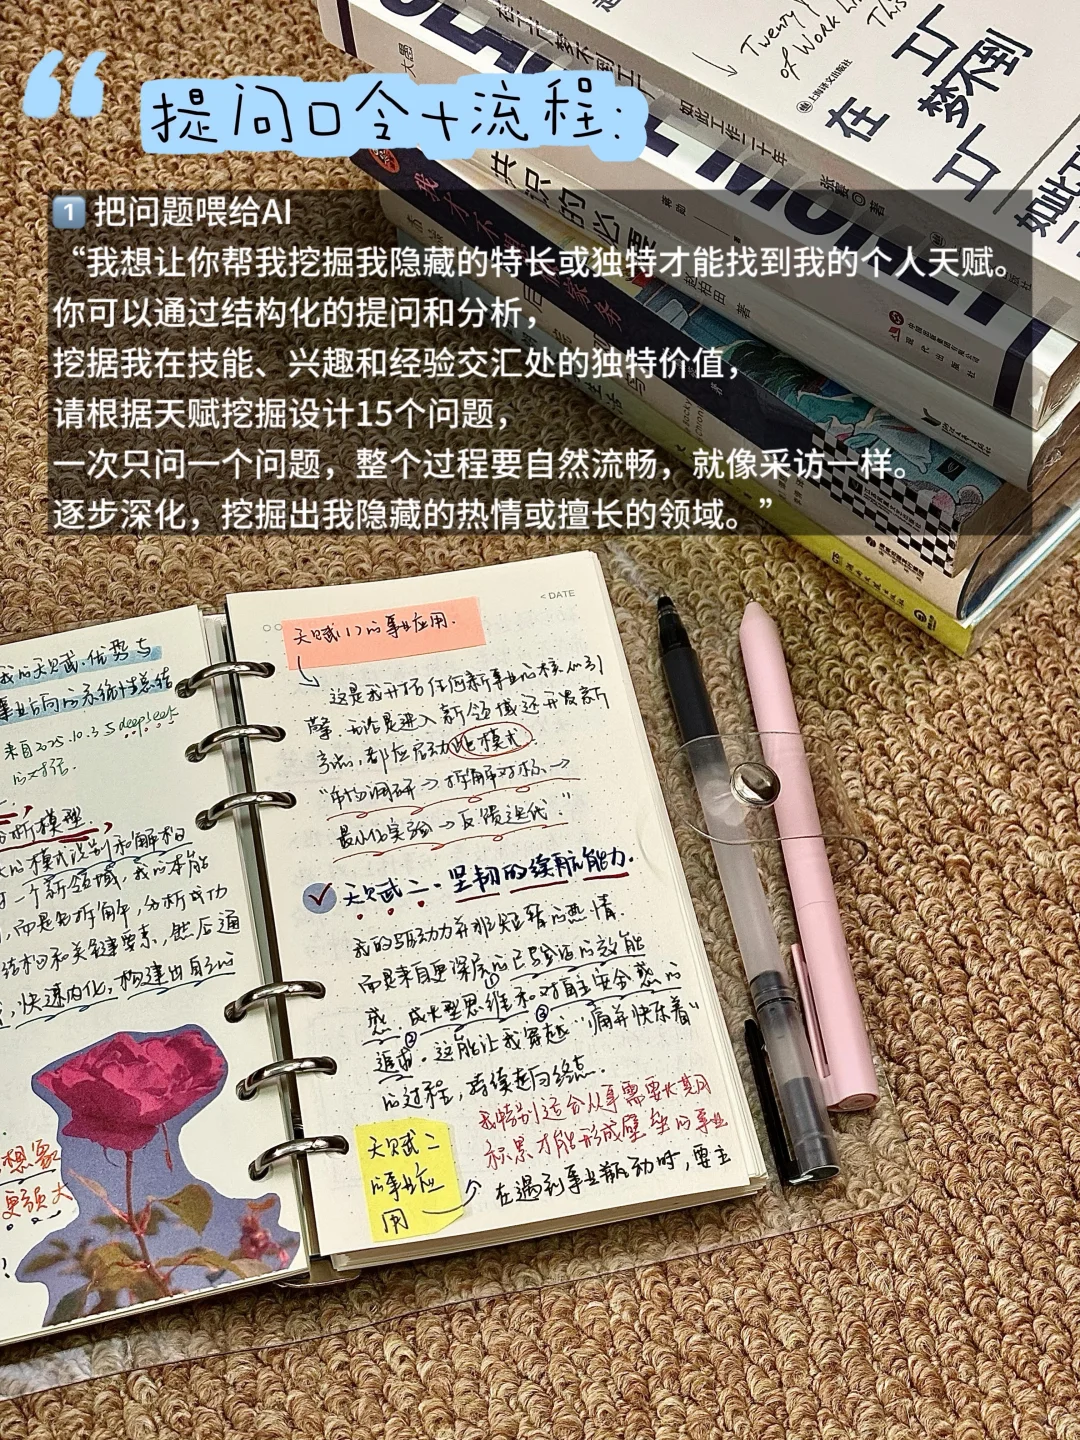 提问口令+流程:
1 把问题喂给AI
“我想让你帮我挖掘我隐藏的特长或独特才能找到我的个人天赋。
你可以通过结构化的提问和分析，
挖掘我在技能、兴趣和经验交汇处的独特价值，
请根据天赋挖掘设计15个问题，
一次只问一个问题，整个过程要自然流畅，就像采访一样。
逐步深化，挖掘出我隐藏的热情或擅长的领域。”
Twenty
of Work
This
在工厂梦不到工厂
如此工作二十年
张赛 著
上海译文出版社
大墨
共识的必要
蒋勋
赵柏田 著
我的天赋·优势与
事业方向的系统性总结
来自2025.10.3与deepseek
的对话.
分析模型.
模式识别和解构
一个新领域，我的本能
，而是先拆解，分析成功
结构和关键要素，然后通
，快速内化，构建出自己的
想象
更强大
<DATE
天赋(1)的事业应用.
这是我开拓任何新事业的核心引
擎. 无论是进入新领域还开发新
产品，都应启动此模式.
“市场调研→拆解对标→
最小化实验→反馈迭代.”
天赋二.坚韧的续航能力.
我的驱动力并非短暂的热情.
而是来自更深层的①已验证的效能
感.②成长型思维和③对自主安全感的
追求. 这能让我穿越“痛并快乐着”
的过程，持续走向终点.
我特别适合从事需要长期
积累才能形成壁垒的事业
天赋二
的事业应
用
在遇到事业瓶动时，要主